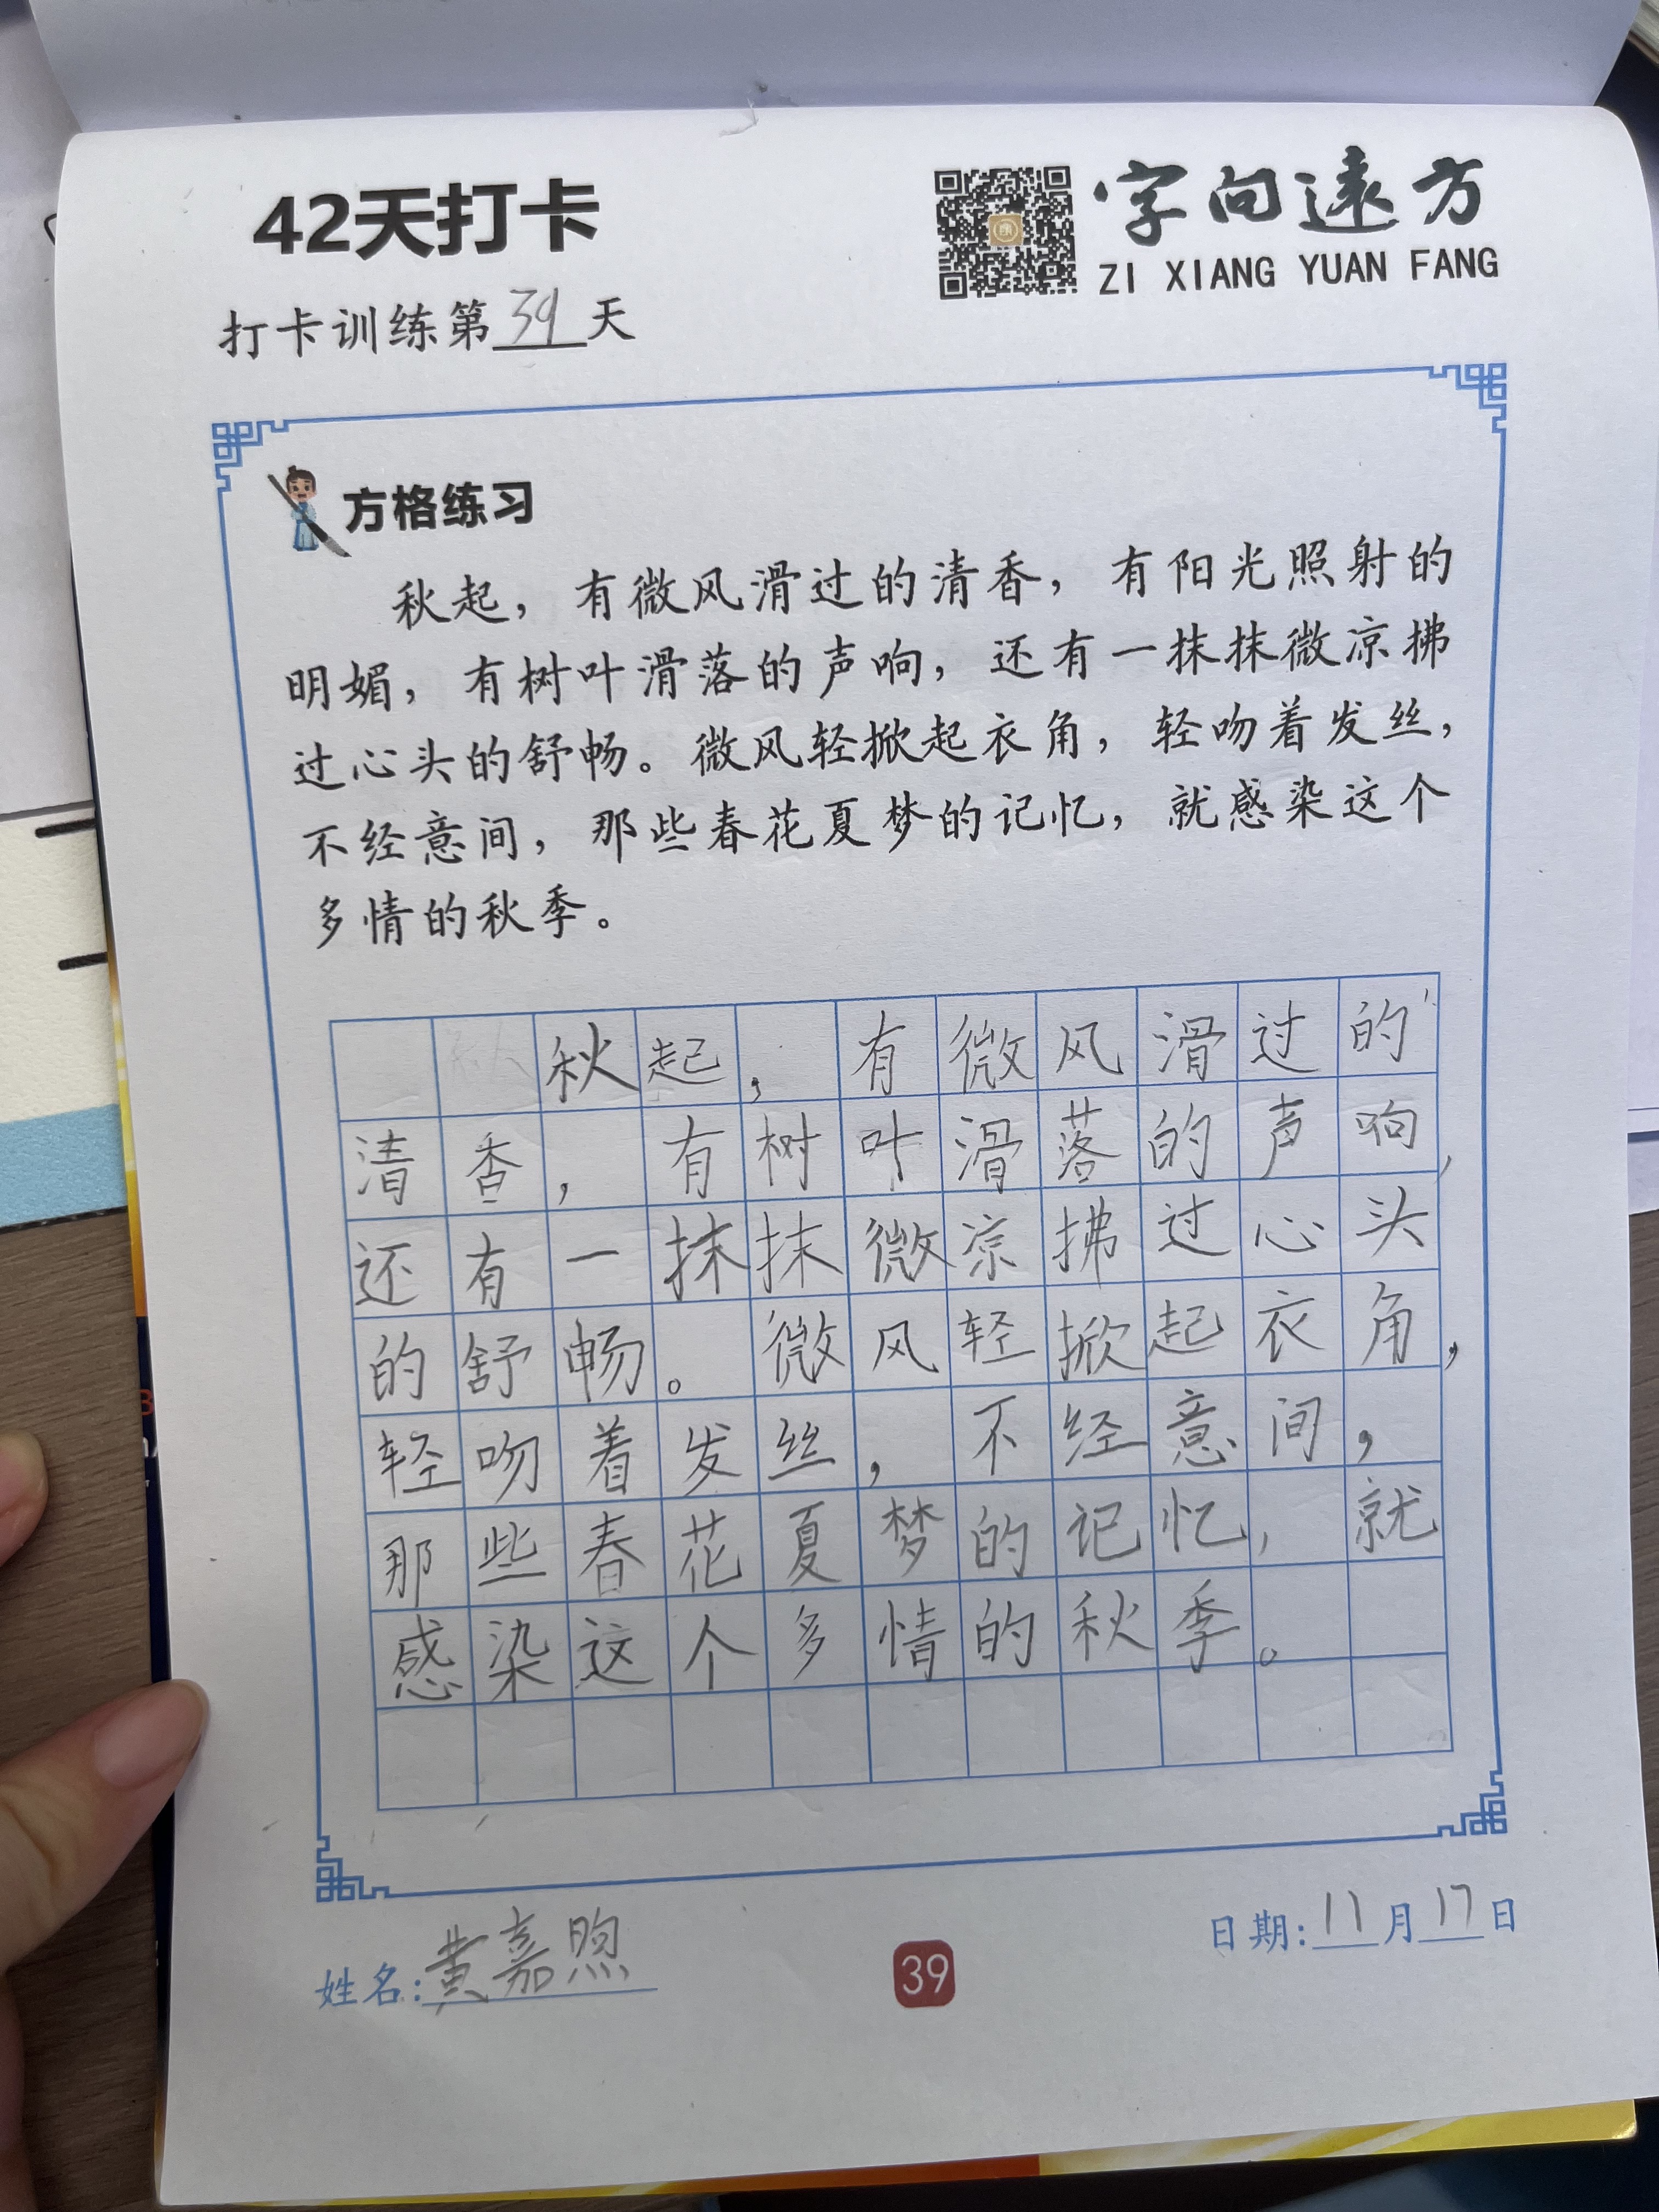 42天打卡
字向遠方
ZI XIANG YUAN FANG
打卡训练第39天
方格练习
秋起，有微风滑过的清香，有阳光照射的
明媚，有树叶滑落的声响，还有一抹抹微凉拂
过心头的舒畅。微风轻掀起衣角，轻吻着发丝，
不经意间，那些春花夏梦的记忆，就感染这个
多情的秋季。
秋起，有微风滑过的
清香，有树叶滑落的声响，
还有一抹抹微凉拂过心头
的舒畅。微风轻掀起衣角，
轻吻着发丝，不经意间，
那些春花夏梦的记忆，就
感染这个多情的秋季。
姓名：黄嘉煦
39
日期：11月17日